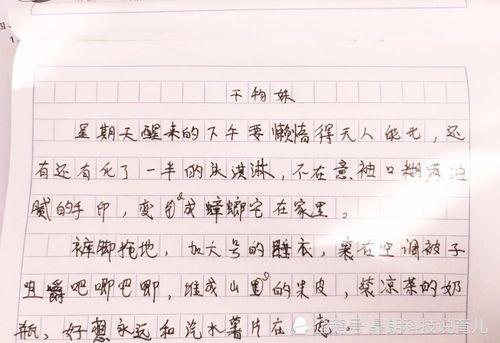 干物妹
星期天醒来的下午要懒惰得无人能比，还
有还有化了一半的冰淇淋，不在意袖口糊满油
腻的手印，变身成蟑螂宅在家里。
裤脚拖地，加大号的睡衣，裹在空调被子
咀嚼吧唧吧唧，堆成山的果皮，装凉茶的奶
瓶，好想永远和汽水薯片在一起